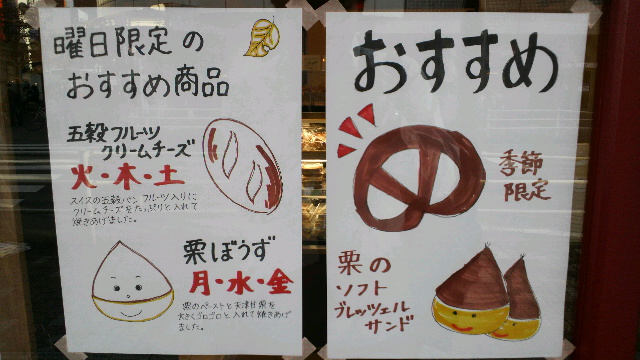 曜日限定の
おすすめ商品
五穀フルーツ
クリームチーズ
火・木・土
スイスの五穀パン フルーツ入りに
クリームチーズをたっぷりと入れて
焼きあげました。
栗ぼうず
月・水・金
栗のペーストと天津甘栗を
大きくゴロゴロと入れて焼きあげ
ました。
おすすめ
季節
限定
栗の
ソフト
ブレッツェル
サンド